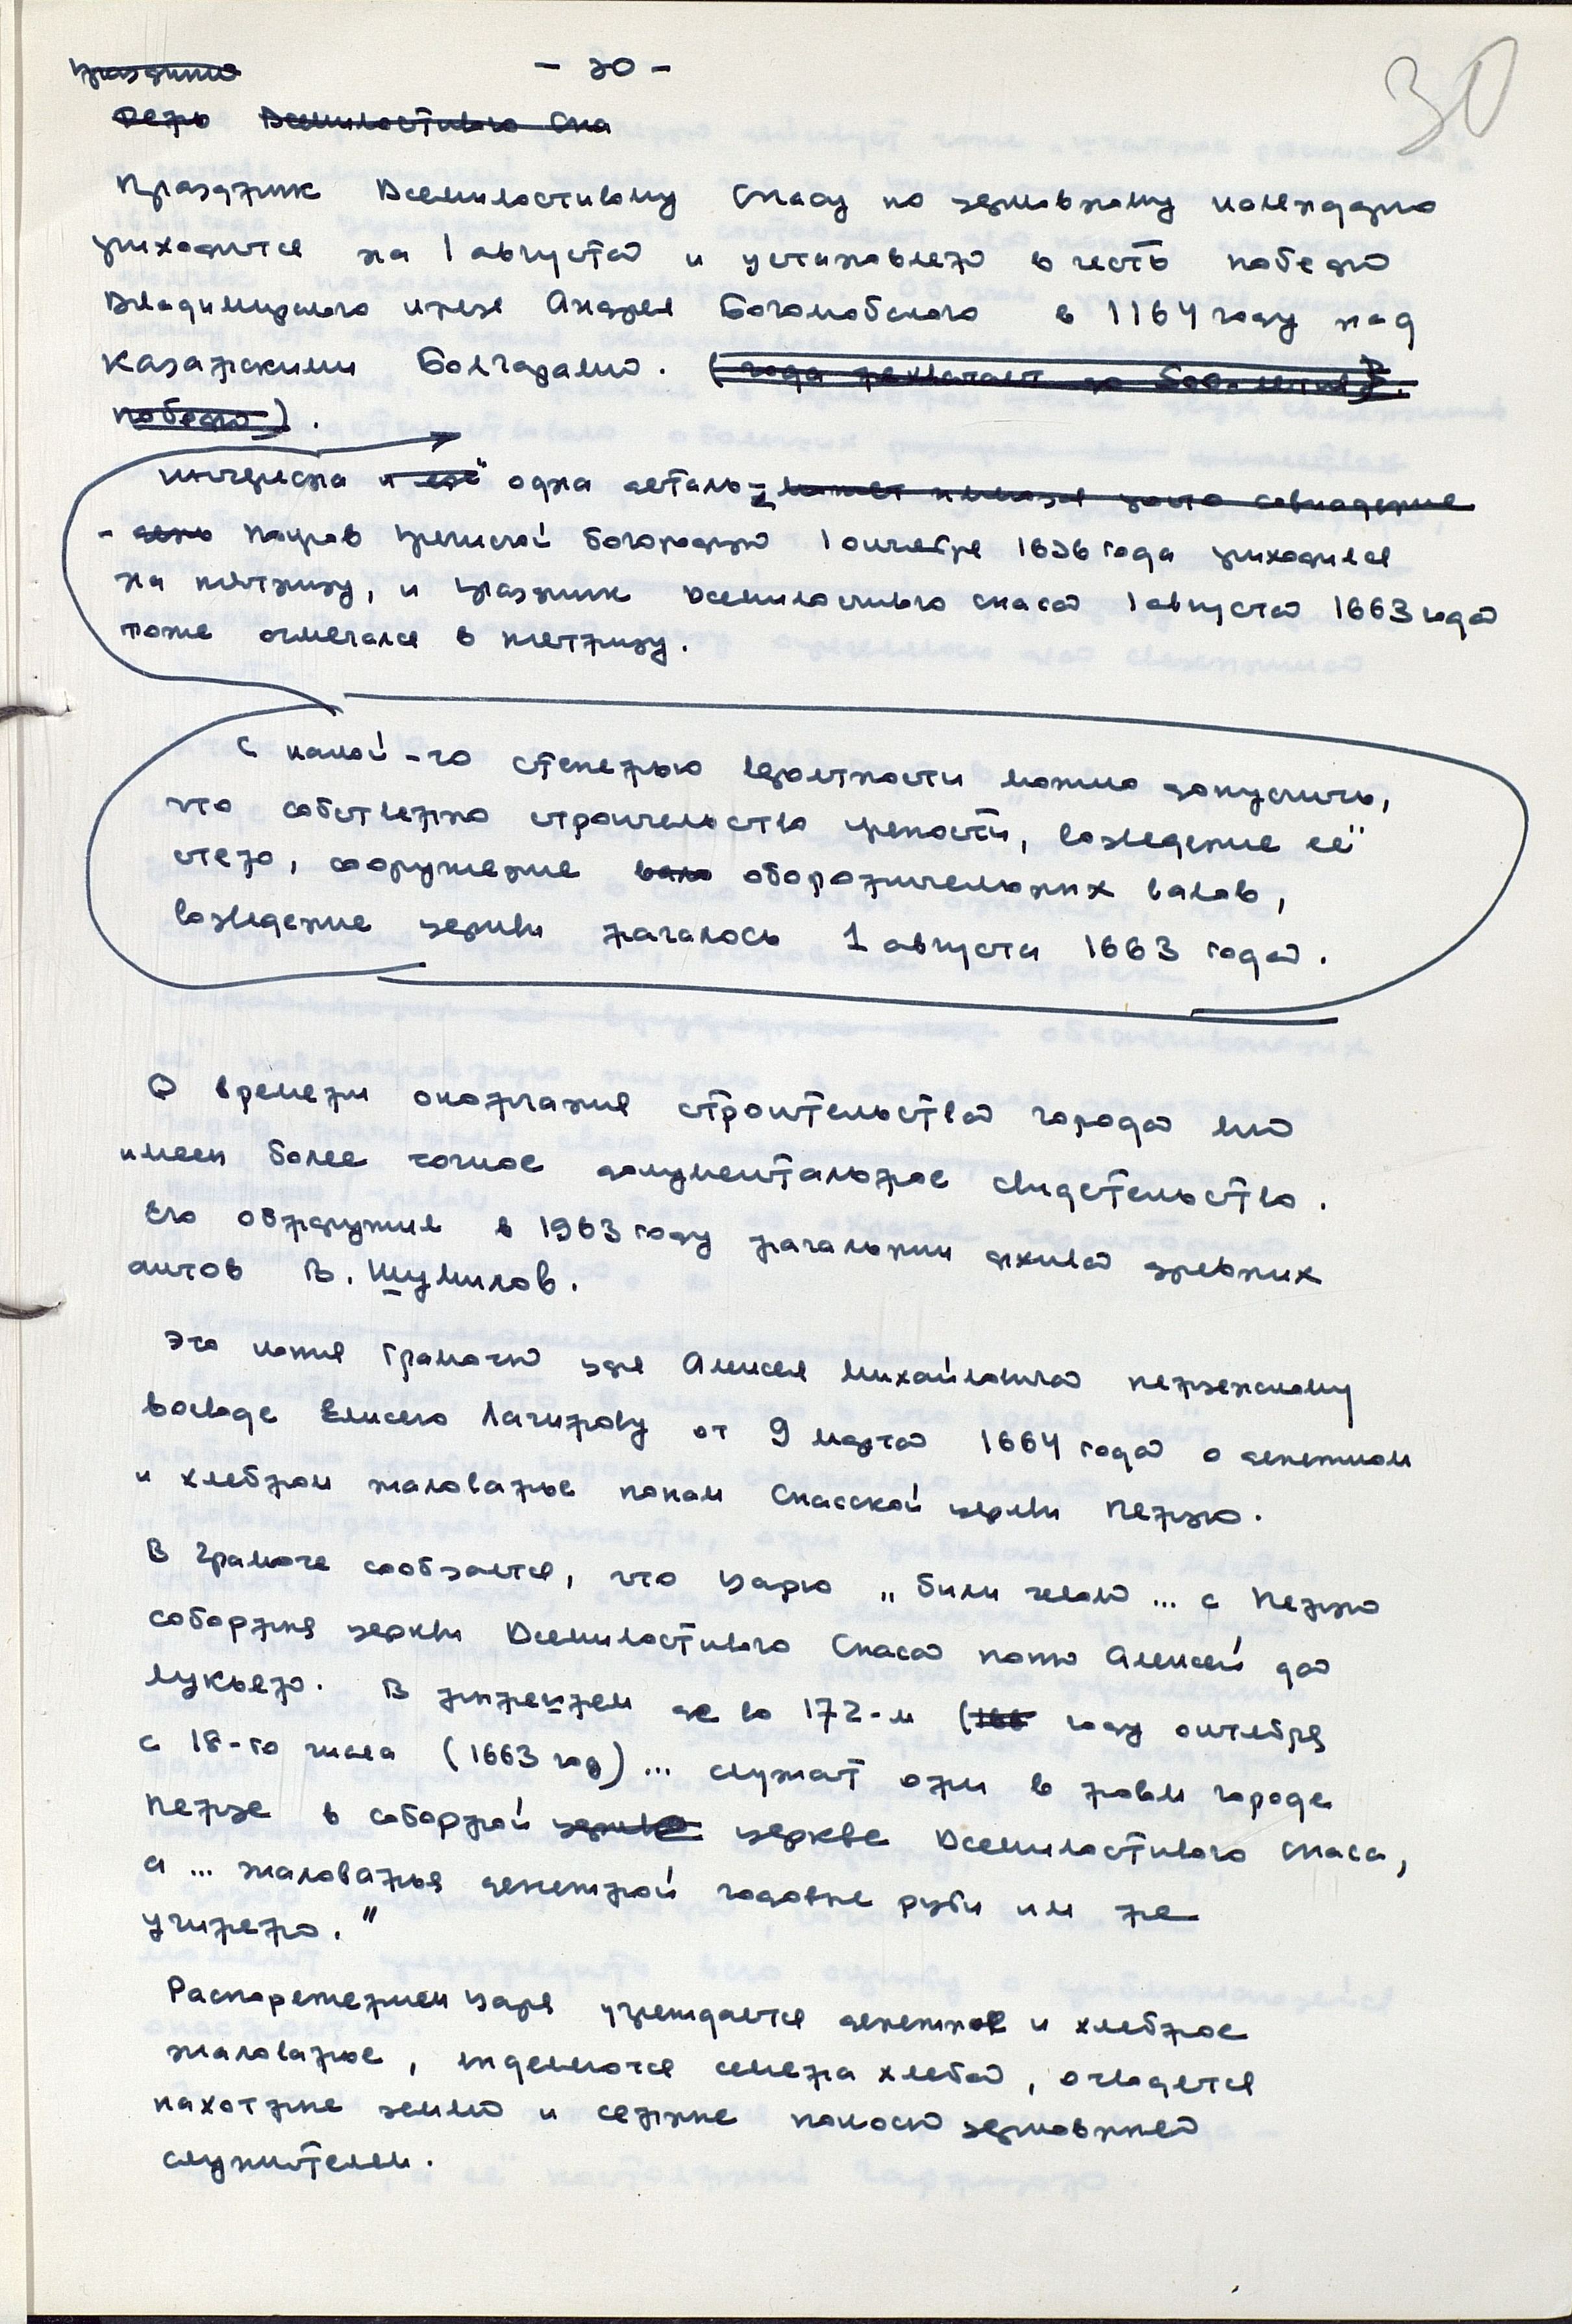 - 30 -
30
Праздник
День Всемилостивого Спа
Праздник Всемилостивому Спасу по церковному календарю
приходится на 1 августа и установлен в честь победы
Владимирского князя Андрея Боголюбского в 1164 году над
казанскими болгарами. (года нехватает до 500-летия
победы).
Интересна и ещё одна деталь -
- день Покров Пречистой богородицы 1 октября 1636 года приходился
на пятницу, и праздник Всемилостивого спаса 1 августа 1663 года
тоже отмечался в пятницу.
С какой-то степенью вероятности можно допустить,
что собственно строительство крепости, возведение её
стен, сооружение вало оборонительных валов,
возведение церкви началось 1 августа 1663 года.
О времени окончания строительства города мы
имеем более точное документальное свидетельство.
Его обнаружил в 1963 году начальник архива древних
актов В. Шумилов.
Это копия грамоты царя Алексея Михайловича пензенскому
воеводе Елисею Лачинову от 9 марта 1664 года о денежном
и хлебном жалованье попам Спасской церкви Пензы.
В грамоте сообщается, что царю „били челом ... с Пензы
соборныя церкви Всемилостивого Спаса попы Алексей да
Лукьян. В нынешнем де во 172-м (166 году октября
с 18-го числа (1663 год) ... служат они в новом городе
Пензе в соборной церкве церкве Всемилостивого Спаса,
а ... жалованья денежной годовые руги им не
учинено."
Распоряжением царя учреждается денежное и хлебное
жалованье, выделяются семена хлеба, отводятся
пахотные земли и сенные покосы церковным
служителям.